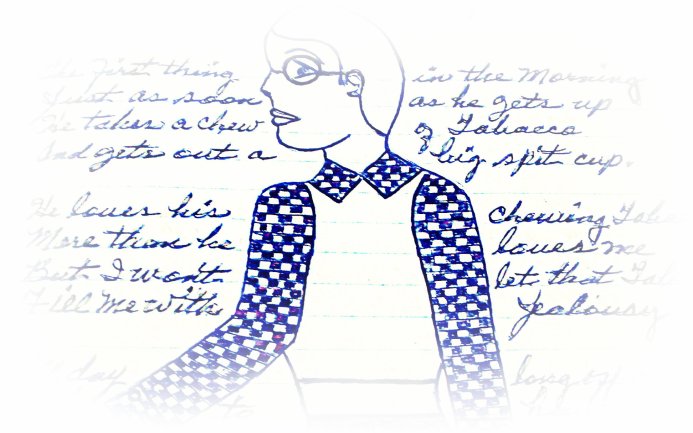 The First thing in the Morning
Just as soon as he gets up
He takes a chew of Tobacco
And gets out a big spit cup.
He loves his chewing
More than he loves me
But I won't let that
Fill Me with Jealousy
All day long